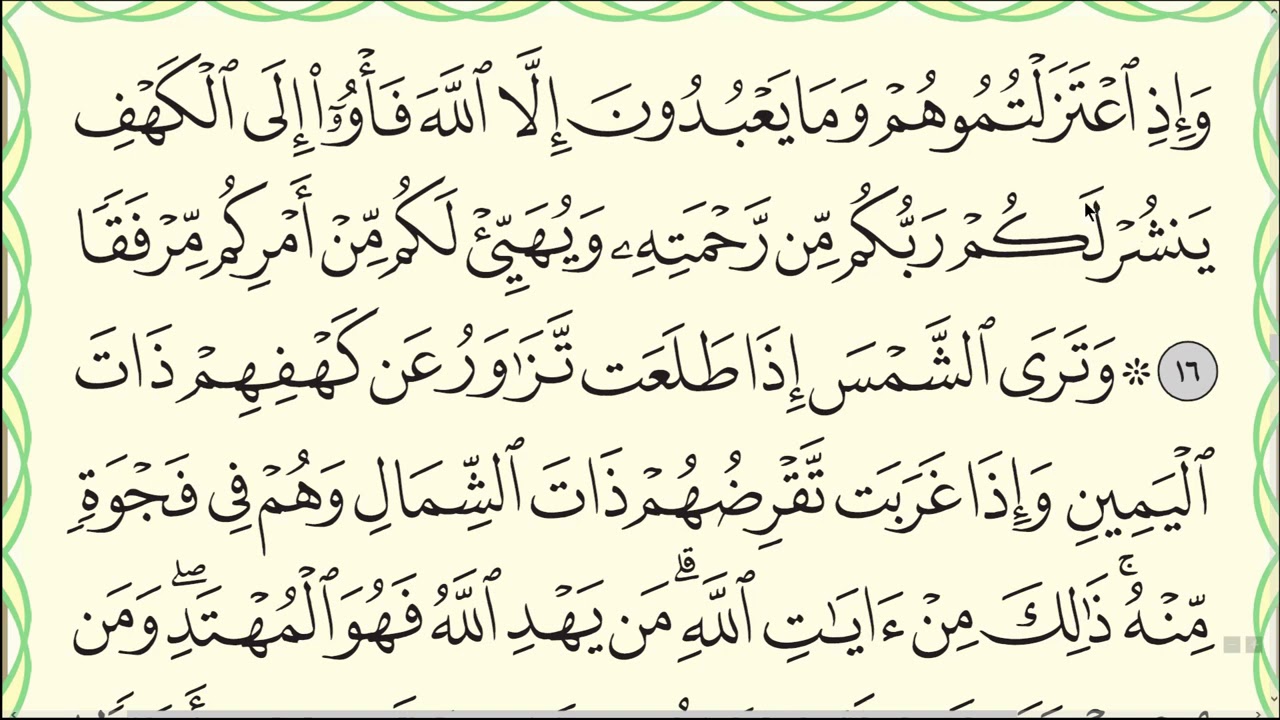 وَإِذِ ٱعْتَزَلْتُمُوهُمْ وَمَا يَعْبُدُونَ إِلَّا ٱللَّهَ فَأْوُۥٓا۟ إِلَى ٱلْكَهْفِ
يَنشُرْ لَكُمْ رَبُّكُم مِّن رَّحْمَتِهِۦ وَيُهَيِّئْ لَكُم مِّنْ أَمْرِكُم مِّرْفَقًا
١٦ ۞ وَتَرَى ٱلشَّمْسَ إِذَا طَلَعَت تَّزَٰوَرُ عَن كَهْفِهِمْ ذَاتَ
ٱلْيَمِينِ وَإِذَا غَرَبَت تَّقْرِضُهُمْ ذَاتَ ٱلشِّمَالِ وَهُمْ فِى فَجْوَةٍ
مِّنْهُ ۚ ذَٰلِكَ مِنْ ءَايَـٰتِ ٱللَّهِ ۗ مَن يَهْدِ ٱللَّهُ فَهُوَ ٱلْمُهْتَدِ ۖ وَمَن